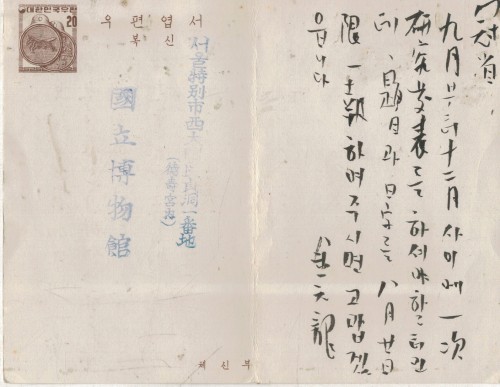 冠省.
九月부터 十二月 사이에 一次
硏究发表를 하셔야 하는 터인
데, 題目과 日字를 八月廿日
限 하여 주시면 고맙겠
읍니다
金元龍
대한민국우표
20
우편엽서
복신
서울特別市西大 貞洞一番地
(德壽宮內)
國立博物館
체신부